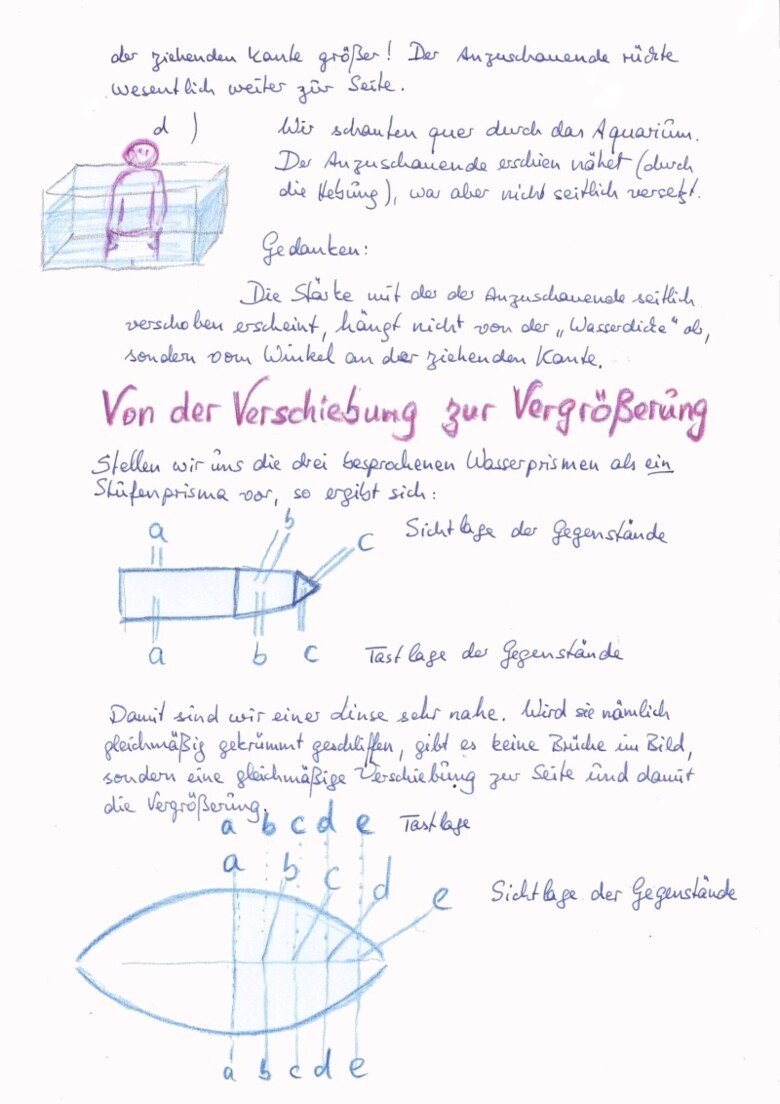 der ziehenden Kante größer! Der Anzuschauende rückte
wesentlich weiter zur Seite.
d) Wir schauten quer durch das Aquarium.
Der Anzuschauende erschien näher (durch
die Hebung), war aber nicht seitlich versetzt.
Gedanken:
Die Stärke mit der der Anzuschauende seitlich
verschoben erscheint, hängt nicht von der „Wasserdicke" ab,
sondern vom Winkel an der ziehenden Kante.
Von der Verschiebung zur Vergrößerung
Stellen wir uns die drei besprochenen Wasserprismen als ein
Stufenprisma vor, so ergibt sich:
a b c Sichtlage der Gegenstände
a b c Tastlage der Gegenstände
Damit sind wir einer Linse sehr nahe. Wird sie nämlich
gleichmäßig gekrümmt geschliffen, gibt es keine Brüche im Bild,
sondern eine gleichmäßige Verschiebung zur Seite und damit
die Vergrößerung.
a b c d e Tastlage
a b c d e Sichtlage der Gegenstände
a b c d e